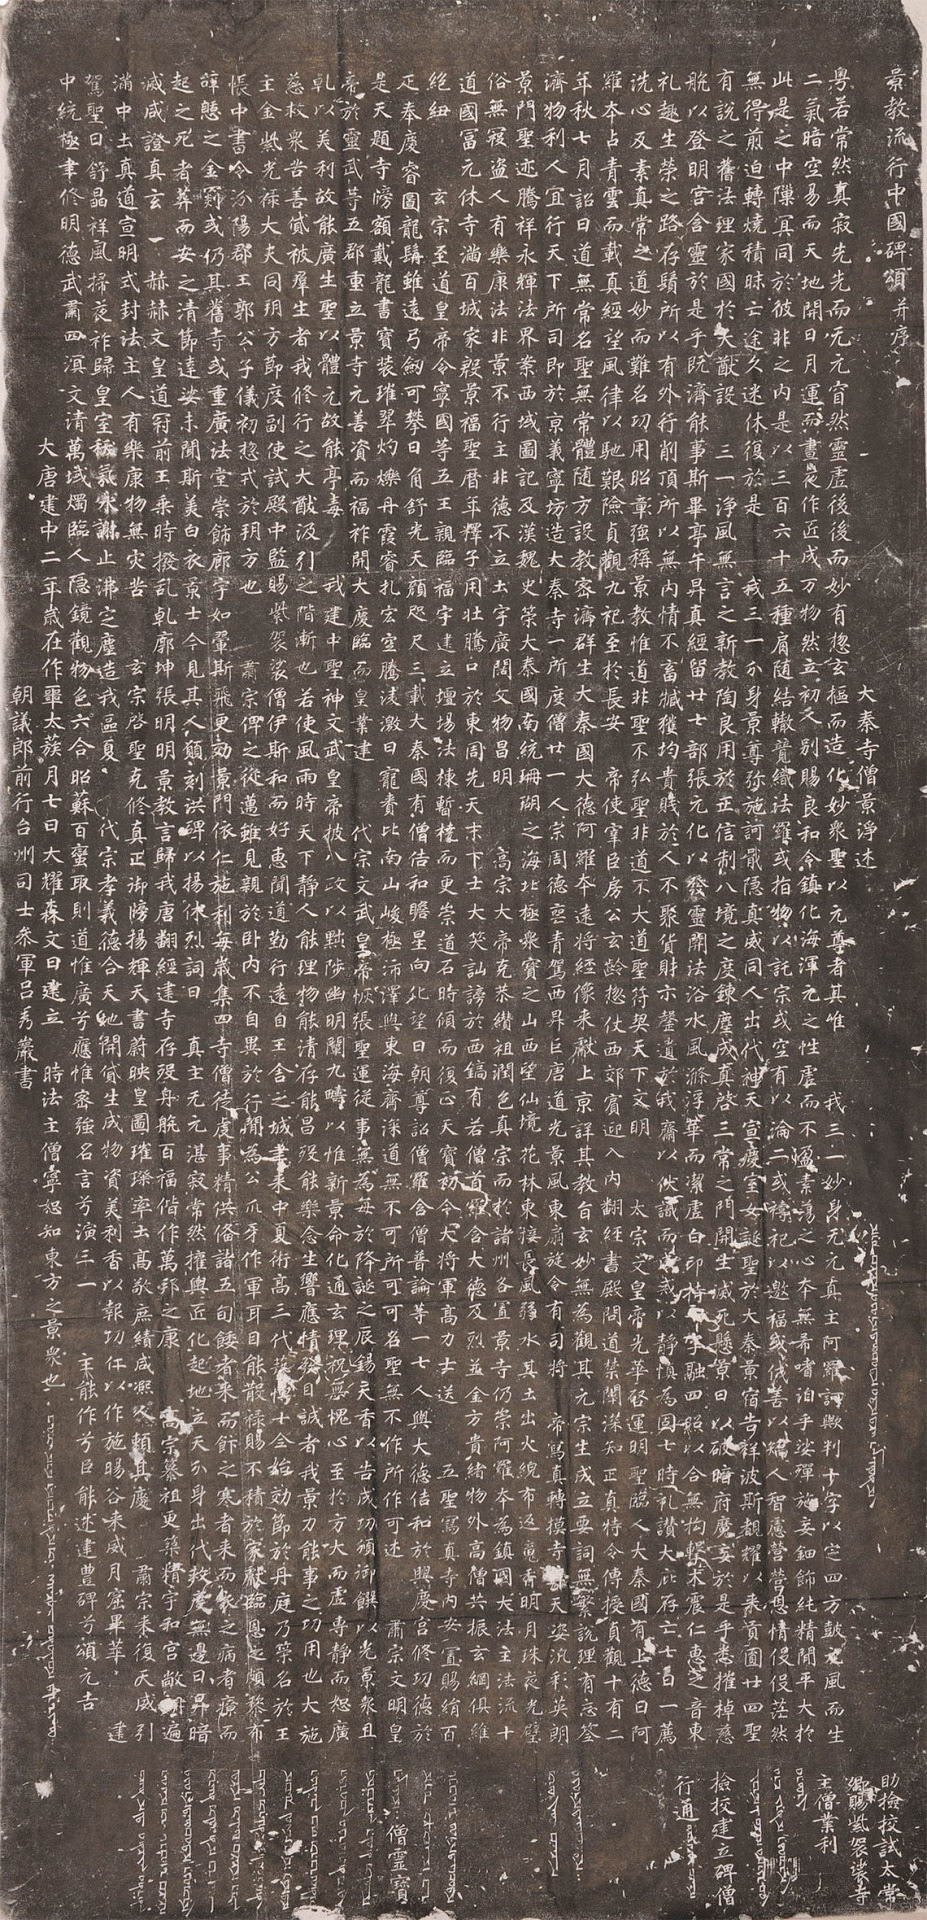 景教流行中國碑頌并序
大秦寺僧景淨述
粵若常然真寂先先而无元窅然靈虛後後而妙有惣玄樞而造化妙眾聖以元尊者其唯 我三一妙身无元真主阿羅訶歟判十字以定四方鼓元風而生
二氣暗空易而天地開日月運而晝夜作匠成万物然立初人別賜良和令鎮化海渾元之性虛而不盈素蕩之心本無希嗜洎乎娑殫施妄鈿飾純精閒平大於
此是之中隟冥同於彼非之內是以三百六十五種肩隨結轍競織法羅或指物以託宗或空有以淪二或禱祀以邀福或伐善以矯人智慮營營恩情伇伇茫然
無得煎迫轉燒積昧亡途久迷休復於是 我三一分身景尊弥施訶戢隱真威同人出代神天宣慶室女誕聖於大秦景宿告祥波斯覩耀以來貢圓廿四聖
有說之舊法理家國於大猷設 三一淨風無言之新教陶良用於正信制八境之度鍊塵成真啓三常之門開生滅死懸景日以破暗府魔妄於是乎悉摧棹慈
航以登明宮含靈於是乎既濟能事斯畢亭午昇真經留廿七部張元化以發靈關法浴水風滌浮華而潔虛白印持十字融四照以合無拘擊木震仁惠之音東
礼趣生榮之路存鬚所以有外行削頂所以無內情不畜臧獲均貴賤於人不聚貨財示罄遺於我齋以伏識而成戒以靜慎為固七時礼讚大庇存亡七日一薦
洗心反素真常之道妙而難名功用昭彰強稱景教惟道非聖不弘聖非道不大道聖符契天下文明 太宗文皇帝光華啓運明聖臨人大秦國有上德曰阿
羅本占青雲而載真經望風律以馳艱險貞觀九祀至於長安 帝使宰臣房公玄齡惣仗西郊賓迎入內翻經書殿問道禁闈深知正真特令傳授貞觀十有二
年秋七月詔曰道無常名聖無常體隨方設教密濟群生大秦國大德阿羅本遠將經像來獻上京詳其教旨玄妙無為觀其元宗生成立要詞無繁說理有忘筌
濟物利人宜行天下所司即於京義寧坊造大秦寺一所度僧廿一人宗周德喪青駕西昇巨唐道光景風東扇旋令有司將 帝寫真轉摸寺壁天姿汎彩英朗
景門聖迹騰祥永輝法界案西域圖記及漢魏史策大秦國南統珊瑚之海北極眾寶之山西望仙境花林東接長風弱水其土出火綄布返魂香明月珠夜光璧
俗無寇盜人有樂康法非景不行主非德不立土宇廣闊文物昌明 高宗大帝克恭纘祖潤色真宗而於諸州各置景寺仍崇阿羅本為鎮國大法主法流十
道國富元休寺滿百城家殷景福聖曆年釋子用壯騰口於東周先天末下士大笑訕謗於西鎬有若僧首羅含大德及烈並金方貴緒物外高僧共振玄網俱維
絕紐 玄宗至道皇帝令寧國等五王親臨福宇建立壇場法棟暫橈而更崇道石時傾而復正天寶初令大將軍高力士送 五聖寫真寺內安置賜絹百
疋奉慶睿圖龍髯雖遠弓劍可攀日角舒光天顏咫尺三載大秦國有僧佶和瞻星向化望日朝尊詔僧羅含僧普論等一七人與大德佶和於興慶宮修功德於
是天題寺牓額戴龍書寶裝璀翠灼爍丹霞睿扎宏空騰淩激日寵賚比南山峻極沛澤與東海齊深道無不可所可可名聖無不作所作可述 肅宗文明皇
帝於靈武等五郡重立景寺元善資而福祚開大慶臨而皇業建 代宗文武皇帝恢張聖運從事無為每於降誕之辰錫天香以告成功頒御饌以光景眾且
乹以美利故能廣生聖以體元故能亭毒 我建中聖神文武皇帝披八政以黜陟幽明闡九疇以惟新景命化通玄理祝無愧心至於方大而虛專靜而恕廣
慈救眾苦善貸被羣生者我修行之大猷汲引之階漸也若使風雨時天下靜人能理物能清存能昌歿能樂念生響應情發目誠者我景力能事之功用也大施
主金紫光祿大夫同朔方節度副使試殿中監賜紫袈裟僧伊斯和而好惠聞道勤行遠自王舍之城聿來中夏術高三代藝博十全始効節於丹庭乃策名於王
帳中書令汾陽郡王郭公子儀初惣戎於朔方也 肅宗俾之從邁雖見親於臥內不自異於行間為公爪牙作軍耳目能散祿賜不積於家獻臨恩之頗黎布
辭憩之金罽或仍其舊寺或重廣法堂崇飾廊宇如翬斯飛更効景門依仁施利每歲集四寺僧徒虔事精供備諸五旬餧者來而飰之寒者來而衣之病者療而
起之死者葬而安之清節達娑未聞斯美白衣景士今見其人願刻洪碑以揚休烈詞曰 真主无元湛寂常然權輿匠化起地立天分身出代救度無邊日昇暗
滅咸證真玄 赫赫文皇道冠前王乘時撥亂乹廓坤張明明景教言歸我唐翻經建寺存歿舟航百福偕作萬邦之康 高宗纂祖更築精宇和宮敞朗遍
滿中土真道宣明式封法主人有樂康物無災苦 玄宗啓聖克修真正御牓揚輝天書蔚映皇圖璀璨率土高敬庶績咸熙人賴其慶 肅宗來復天威引
駕聖日舒晶祥風掃夜祚歸皇室祅氛永謝止沸定塵造我區夏 代宗孝義德合天地開貸生成物資美利香以報功仁以作施暘谷來威月窟畢萃 建
中統極聿修明德武肅四溟文清萬域燭臨人隱鏡觀物色六合昭蘇百蠻取則道惟廣兮應惟密強名言兮演三一 主能作兮臣能述建豐碑兮頌元吉
大唐建中二年歲在作噩太蔟月七日大耀森文日建立 時法主僧寧恕知東方之景眾也
朝議郎前行台州司士參軍呂秀巖書
助撿挍試太常
卿賜紫袈裟寺
主僧業利
撿挍建立碑僧
行通
僧靈寶